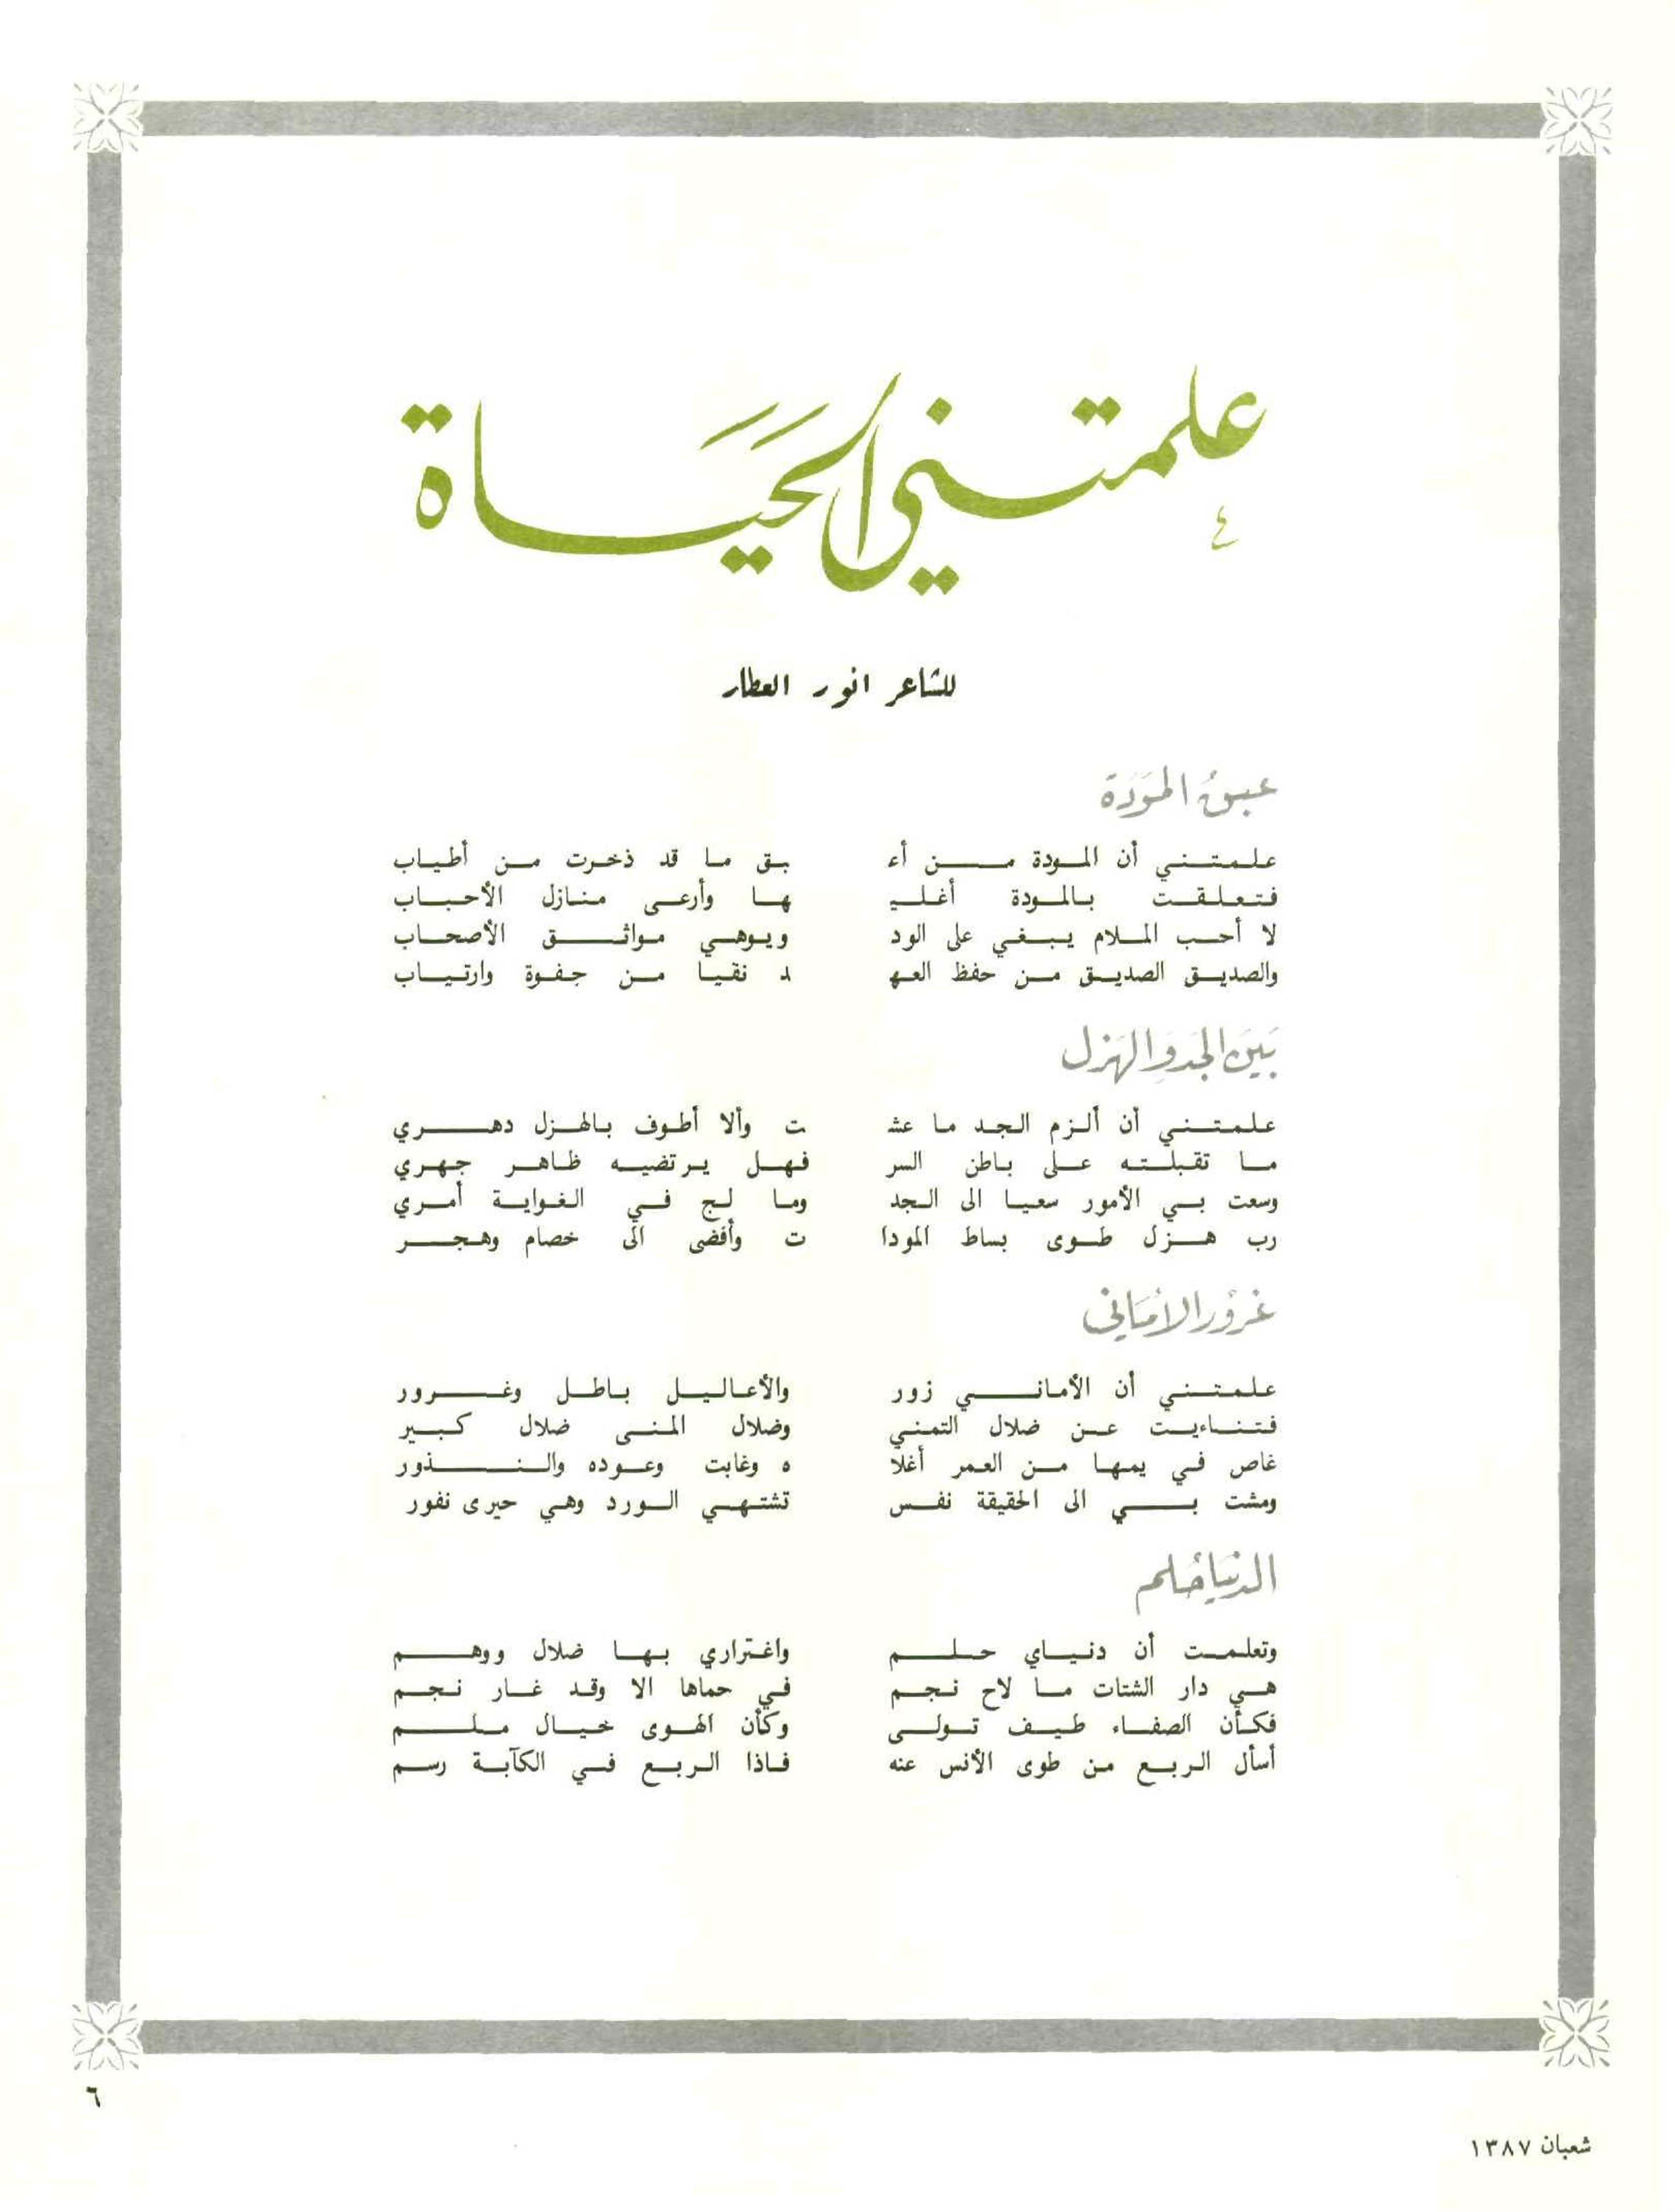 علمتني الحَيَاة
للشاعر انور العطار
عبيرُ المَوَدَة
علمتني أن المودة من أعـ بق ما قد ذخرت من أطياب
فتعلقت بالمودة أغليـ ها وأرعى منازل الأحباب
لا أحب الملام يبغي على الود ويوهي مواثق الأصحاب
والصديق الصديق من حفظ العهـ د نقيا من جفوة وارتياب
بَينَ الجَدِ والهَزل
علمتني أن ألزم الجد ما عشـ ت وألا أطوف بالهزل دهري
ما تقبلته على باطن السر فهل يرتضيه ظاهر جهري
وسعت بي الأمور سعيا الى الجد وما لج في الغواية أمري
رب هزل طوى بساط المودا ت وأفضى الى خصام وهجر
غرُور الأمَاني
علمتني أن الأماني زور والأعاليل باطل وغرور
فتناءيت عن ضلال التمني وضلال المنى ضلال كبير
غاص في يمها من العمر أغلا ه وغابت وعوده والنذور
ومشت بي الى الحقيقة نفس تشتهي الورد وهي حيرى نفور
الدنيَا حُلم
وتعلمت أن دنياي حلم واغتراري بها ضلال ووهم
هي دار الشتات ما لاح نجم في حماها الا وقد غار نجم
فكأن الصفاء طيف تولى وكأن الهوى خيال ملم
أسأل الربع من طوى الأنس عنه فاذا الربع في الكآبة رسم
٦
شعبان ١٣٨٧